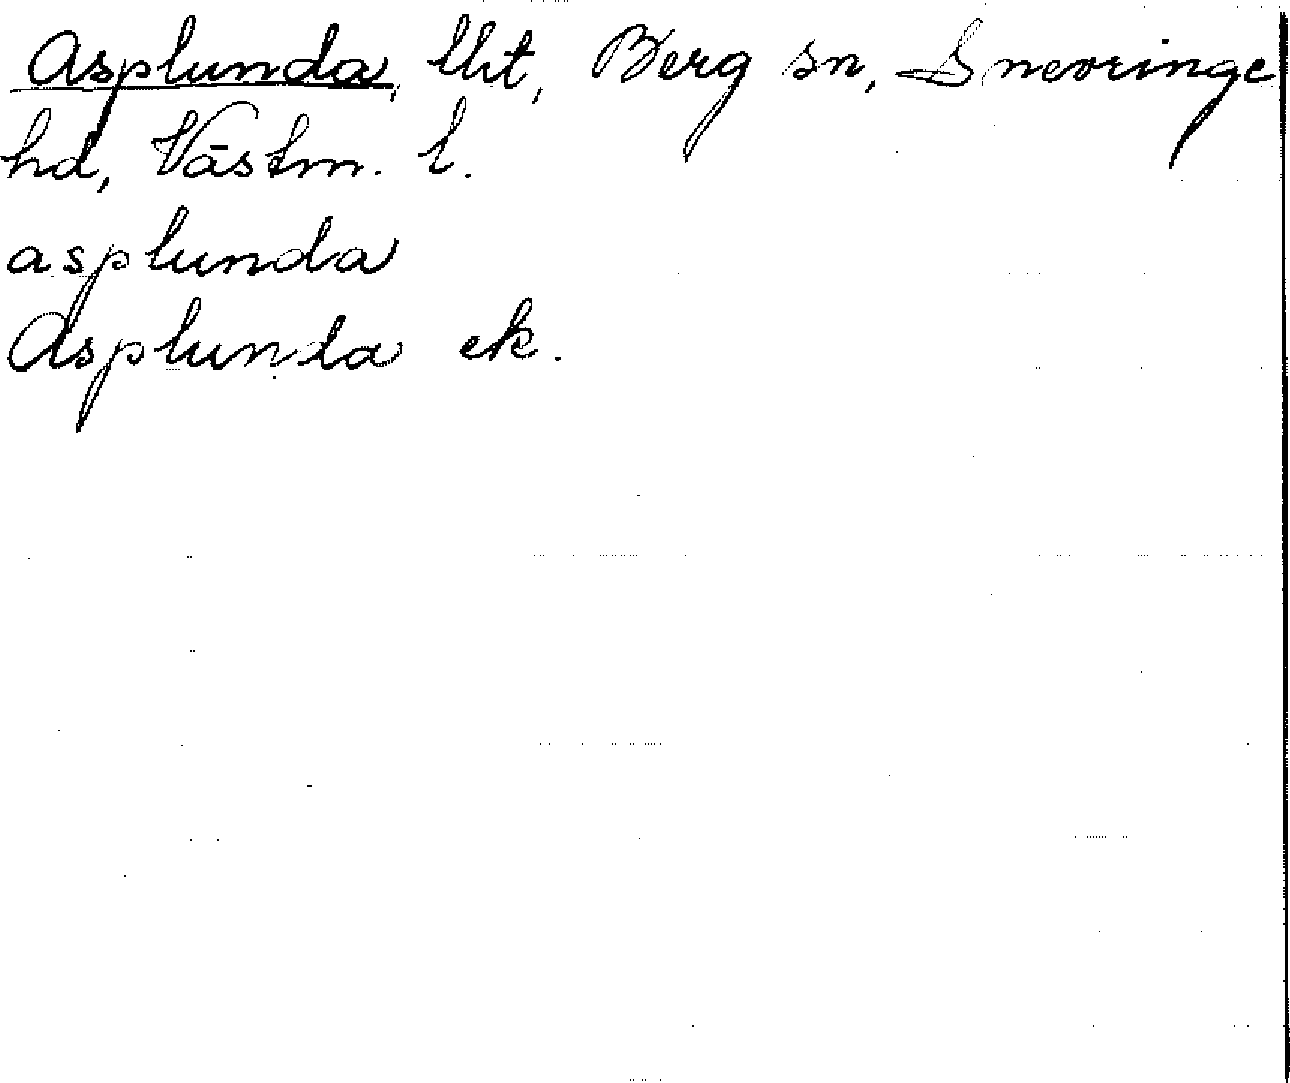 Asplunda, lht, Berg sn, Snevringe
hd, Västm. l.
asplunda
Asplunda ek.